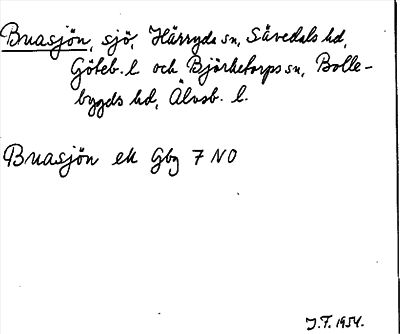 Buasjön, sjö, Härryda sn, Sävedals hd,
Göteb. l och Björketorps sn, Bolle-
bygds hd, Älvsb. l.
Buasjön ek Gbg 7 NO
J.F. 1954.